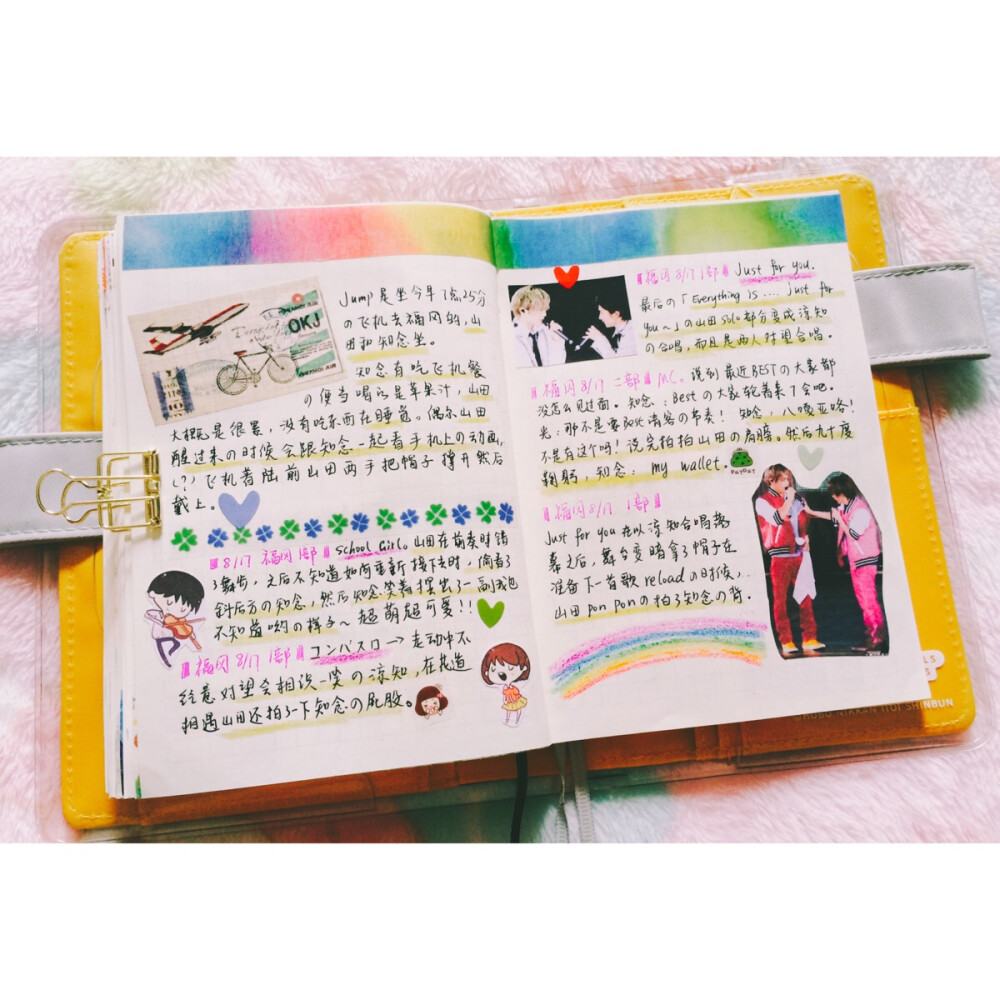 OKJ
Jump是坐今早7点25分
の飞机去福冈的,山
田和知念坐。
知念有吃飞机餐
の便当喝的是苹果汁,山田
大概是很累,没有吃东西在睡觉。偶尔山田
醒过来の时候会跟知念一起看手机上の动画,
(?)飞机着陆前山田两手把帽子撑开然后
戴上。
8/17 福冈 1部 School Girl。山田在前奏时错
了舞步,之后不知道如何重新接下去时,偷看了
斜后方の知念,然后知念笑着摆出了一副我也
不知道哟の样子~超萌超可爱!!
福冈8/17 1部 コンパスロ→走动中不
经意对望会相识一笑の凉知,在花道
相遇山田还拍了一下知念の屁股。
福冈8/17 1部 Just for you.
最后の「Everything is .... Just for
you~」の山田solo部分变成凉知
の合唱,而且是两人对望合唱。
福冈8/17 二部 MC。说到最近BESTの大家都
没怎么见过面。知念:Bestの大家轮着来了会吧。
光:那不是要你请客の节奏!知念,八嘎亚咯!
不是有这个吗!说完拍拍山田の肩膀。然后九十度
鞠躬,知念:my wallet.
PAYDAY
福冈8/17 1部
Just for you在以凉知合唱落
幕之后,舞台变暗拿了帽子在
准备下一首歌reloadの时候,..
山田ponponの拍了知念の背.
©HOBO NIKKAN ITOI SHINBUN